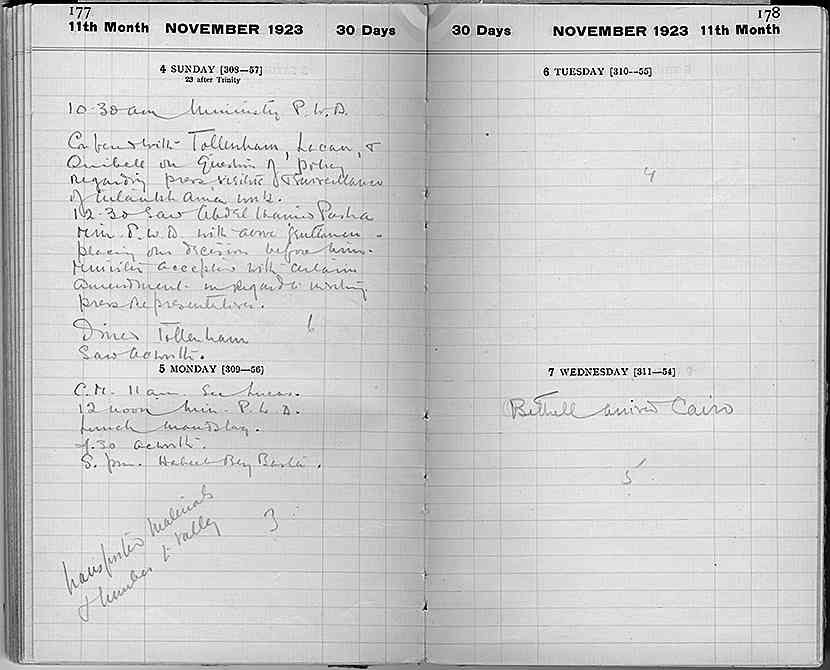 177
11th Month NOVEMBER 1923 30 Days
4 SUNDAY [308—57]
23 after Trinity
10.30 am Ministry P.W.D.
Conference with Tottenham, Lacau, &
Quibell on question of policy
regarding press visitors & surveillance
of
12.30 Saw Abdel Hamid Pasha
Min. P.W.D. with above gentlemen -
placing our decision before him.
Minister accepted with certain
amendment in regard to
press representatives.
Dined Tottenham 6
Saw Acworth.
5 MONDAY [309—56]
C.M. 11 am. See Lucas.
12 noon Min. P.W.D.
Lunch
4.30 Acworth.
8. pm. Bey
Transported materials
& timber to valley
3
178
30 Days NOVEMBER 1923 11th Month
6 TUESDAY [310—55]
4
7 WEDNESDAY [311—54]
Bethell arrived Cairo
5